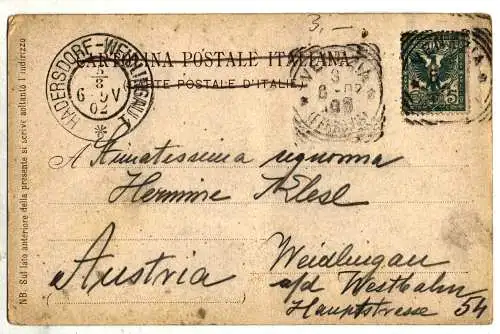 3,-
CARTOLINA POSTALE ITALIANA
(CARTE POSTALE D'ITALIE)
HADERSDORF-WEIDLINGAU 1
8
6 V
02
VENEZIA
8-02
FERROVIA
5
A Stimatissima signorina
Hermine Klesl
Austria
Weidlingau
a/d Westbahn
Hauptstrasse 54
NB. Sul lato anteriore della presente si scrive soltanto l'indirizzo